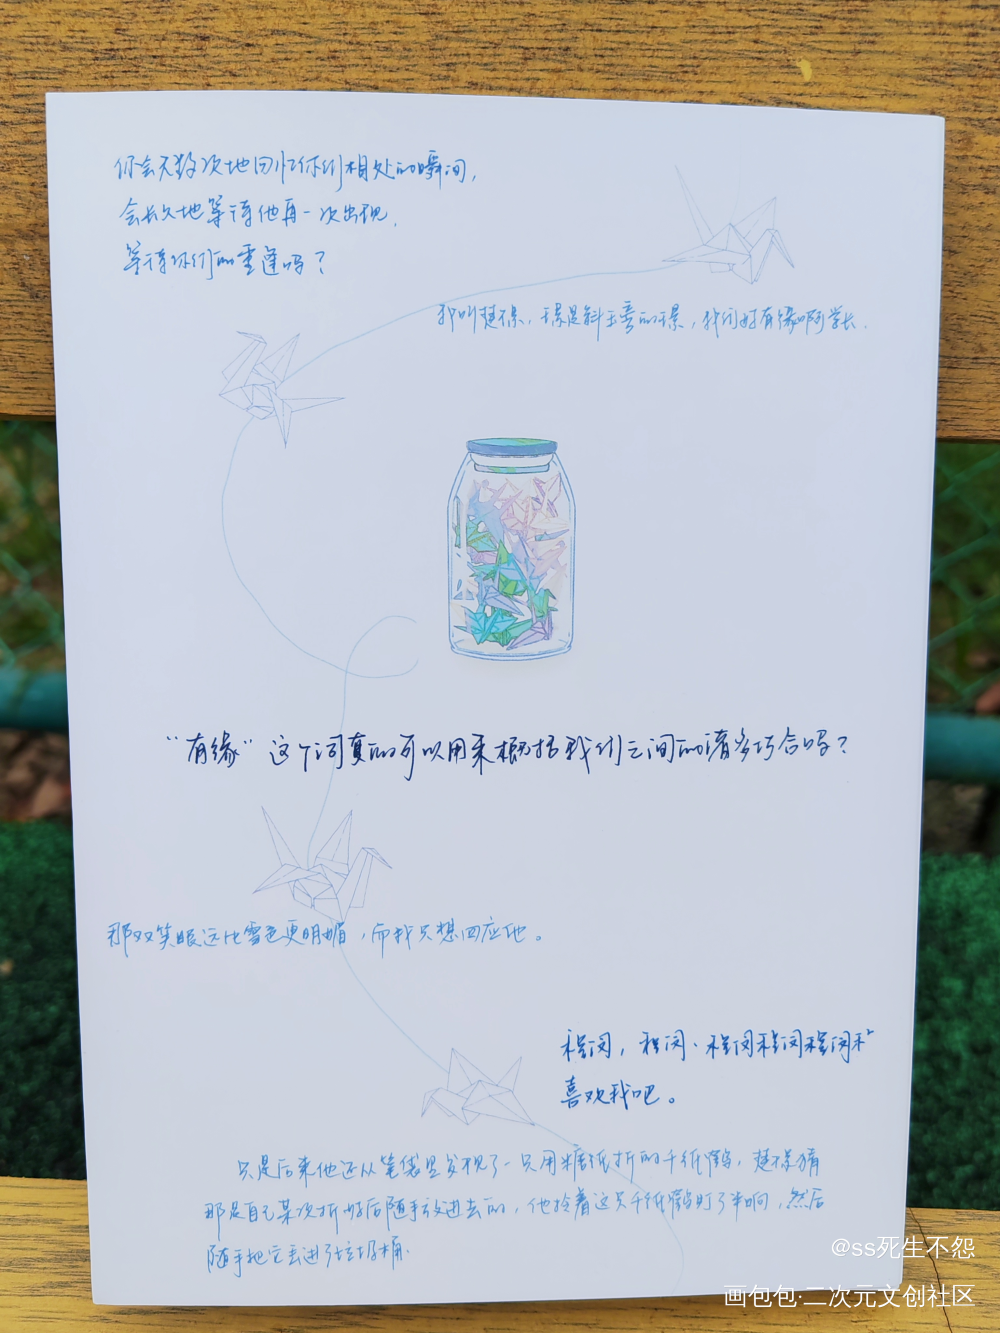 你会无数次地回忆你们相处的瞬间，
会长久地等待他再一次出现，
等待你们的重逢吗？
我叫楚璟，璟是斜玉旁的璟，我们好有缘啊学长．
“有缘”这个词真的可以用来概括我们之间的诸多巧合吗？
那双笑眼远比雪色更明媚，而我只想回应他。
程闵，程闵、程闵程闵程闵
喜欢我吧。
只是后来他还从笔袋里发现了一只用糖纸折的千纸鹤，楚璟猜
那是自己某次折好后随手放进去的，他拎着这只千纸鹤盯了半晌，然后
随手把它丢进了垃圾桶．
@ss死生不怨
画包包·二次元文创社区